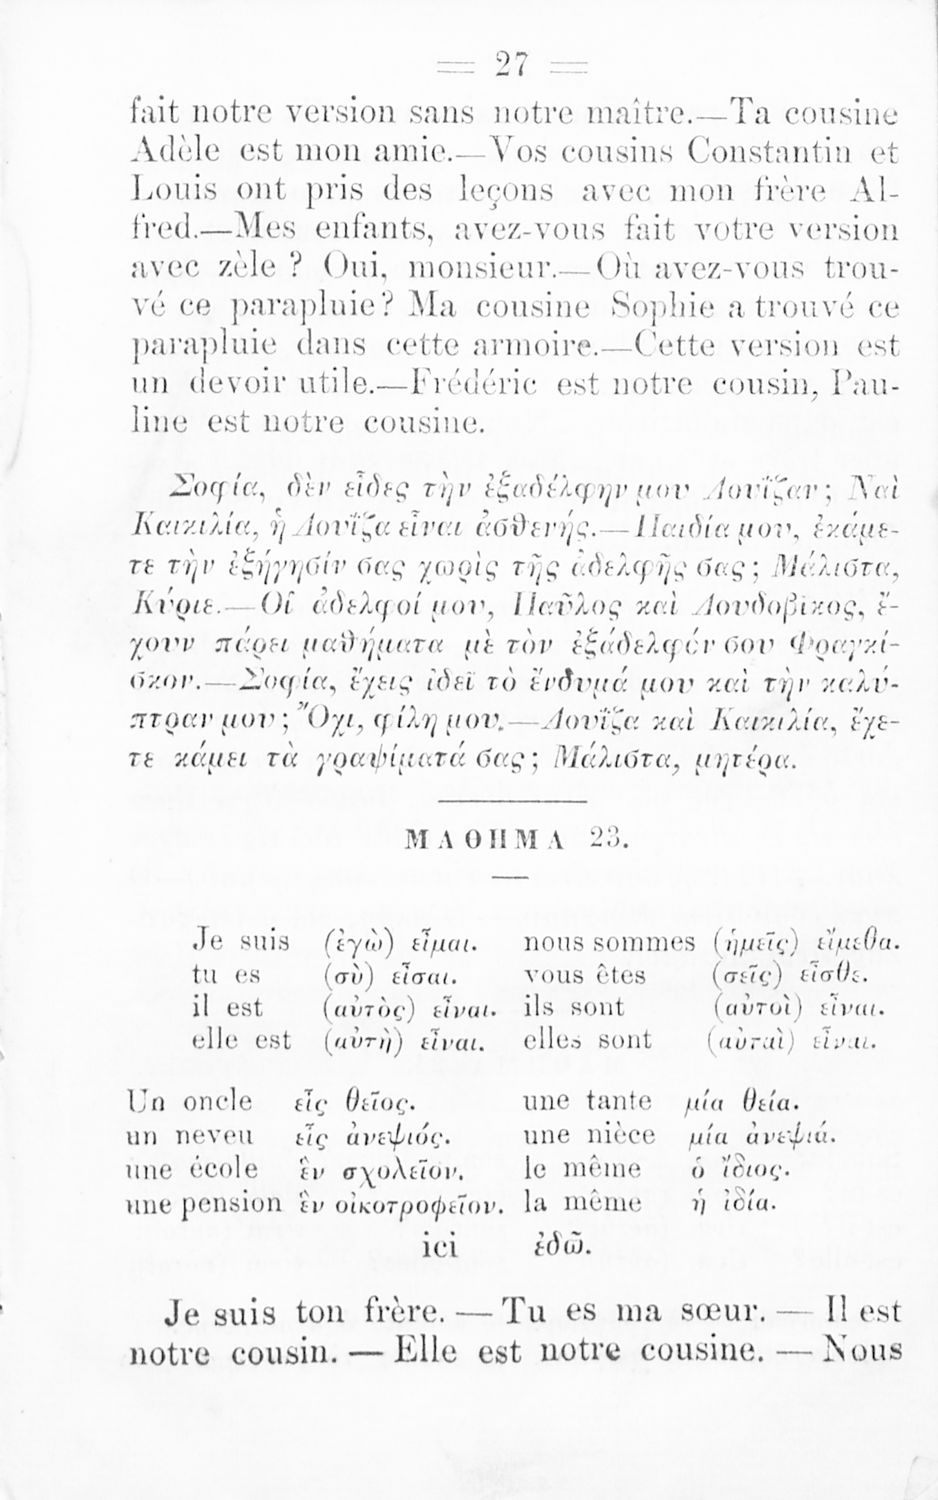 27
fait notre version sans notre maître.—Ta cousine
Adèle est mon amie.—Vos cousins Constantin et
Louis ont pris des leçons avec mon frère Al-
fred.—Mes enfants, avez-vous fait votre version
avec zèle ? Oui, monsieur.—Où avez-vous trou-
vé ce parapluie? Ma cousine Sophie a trouvé ce
parapluie dans cette armoire.—Cette version est
un devoir utile.—Frédéric est notre cousin, Pau-
line est notre cousine.
Σοφία, δὲν εἶδες τὴν ἐξαδέλφην μου Λουΐζαν; Ναὶ
Καικιλία, ἡ Λουΐζα εἶναι ἀσθενής.—Παιδία μου, ἐκάμε-
τε τὴν ἐξήγησίν σας χωρὶς τῆς ἀδελφῆς σας; Μάλιστα,
Κύριε.—Οἱ ἀδελφοί μου, Παῦλος καὶ Λουδοβῖκος, ἔ-
χουν πάρει μαθήματα μὲ τὸν ἐξάδελφόν σου Φραγκί-
σκον.—Σοφία, ἔχεις ἰδεῖ τὸ ἔνδυμά μου καὶ τὴν καλύ-
πτραν μου; Ὄχι, φίλη μου.—Λουΐζα καὶ Καικιλία, ἔχε-
τε κάμει τὰ γραψίματά σας; Μάλιστα, μητέρα.
ΜΑΘΗΜΑ 23.
Je suis (ἐγὼ) εἶμαι. nous sommes (ἡμεῖς) εἴμεθα.
tu es (σὺ) εἶσαι. vous êtes (σεῖς) εἶσθε.
il est (αὐτὸς) εἶναι. ils sont (αὐτοὶ) εἶναι.
elle est (αὐτὴ) εἶναι. elles sont (αὐταὶ) εἶναι.
Un oncle εἷς θεῖος. une tante μία θεία.
un neveu εἷς ἀνεψιός. une nièce μία ἀνεψιά.
une école ἓν σχολεῖον. le même ὁ ἴδιος.
une pension ἓν οἰκοτροφεῖον. la même ἡ ἰδία.
ici ἐδῶ.
Je suis ton frère. — Tu es ma sœur. — Il est
notre cousin. — Elle est notre cousine. — Nous